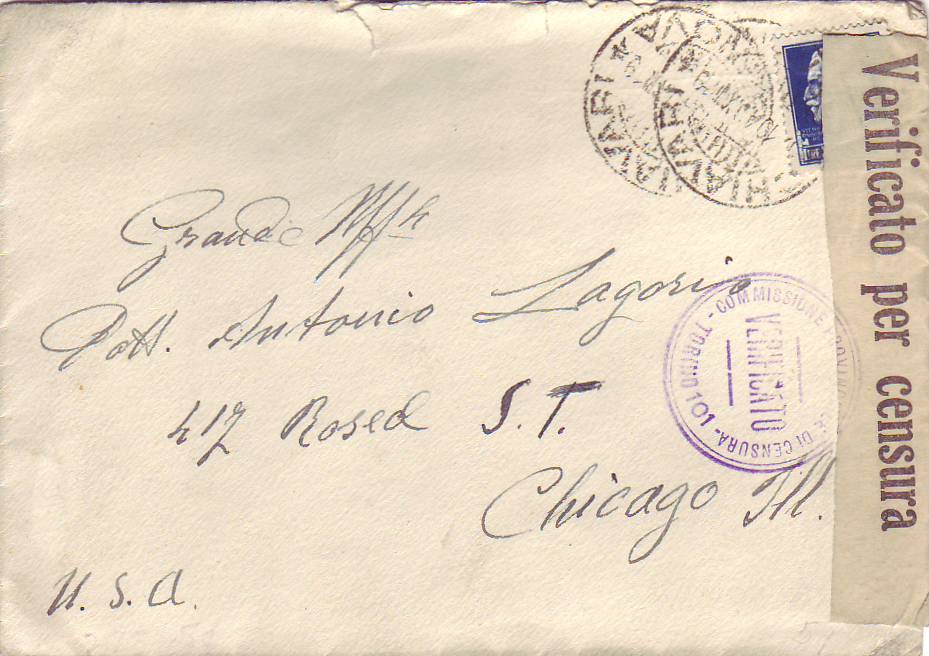 Verificato per censura
CHIAVARI
LIRE
Grande Uff.
Dott. Antonio Lagorio
417 Rosed S.T.
Chicago Ill.
U.S.A.
COMMISSIONE PROVINCIALE DI CENSURA - 101 TORINO -
VERIFICATO